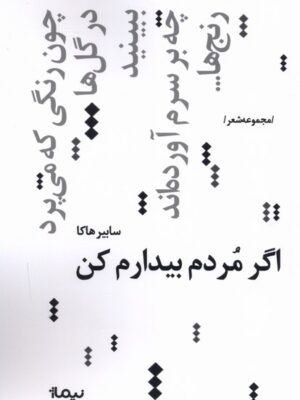 رنج‌ها...
چه بر سرم آورده‌اند
ببینید
در گل‌ها
چون رنگی که می‌پرد
/مجموعه‌شعر/
سابیر هاکا
اگر مُردم بیدارم کن
نیماژ